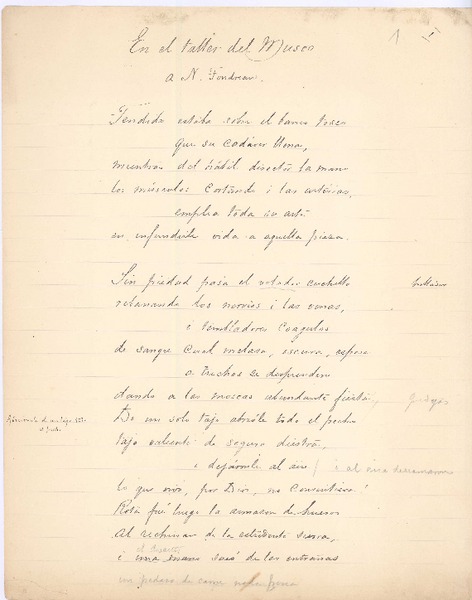 En el taller del Museo
1
a N. Fondrear.
Tendida estaba sobre el banco tosco
que su cadáver llena,
mientras del hábil director la mano
los músculos cortando i las artérias,
emplea toda su arte
en infundirle vida a aquella pieza.
Sin piedad pasa el cuchillo
rebanando los nervios i las venas,
i tembladores coágulos
de sangre cual melasa, oscura, espesa
a trechos se desprenden
dando a las moscas abundante fiesta,
De un solo tajo abrióle todo el pecho
tajo valiente de segura diestra,
i dejáronle al aire / i al aire
lo que vivo, por Dios, no consintiera!
Rota fué luego la armazon de huesos
al rechinar de la estridente sierra,
i una mano sacó de las entrañas
un pedazo de carne